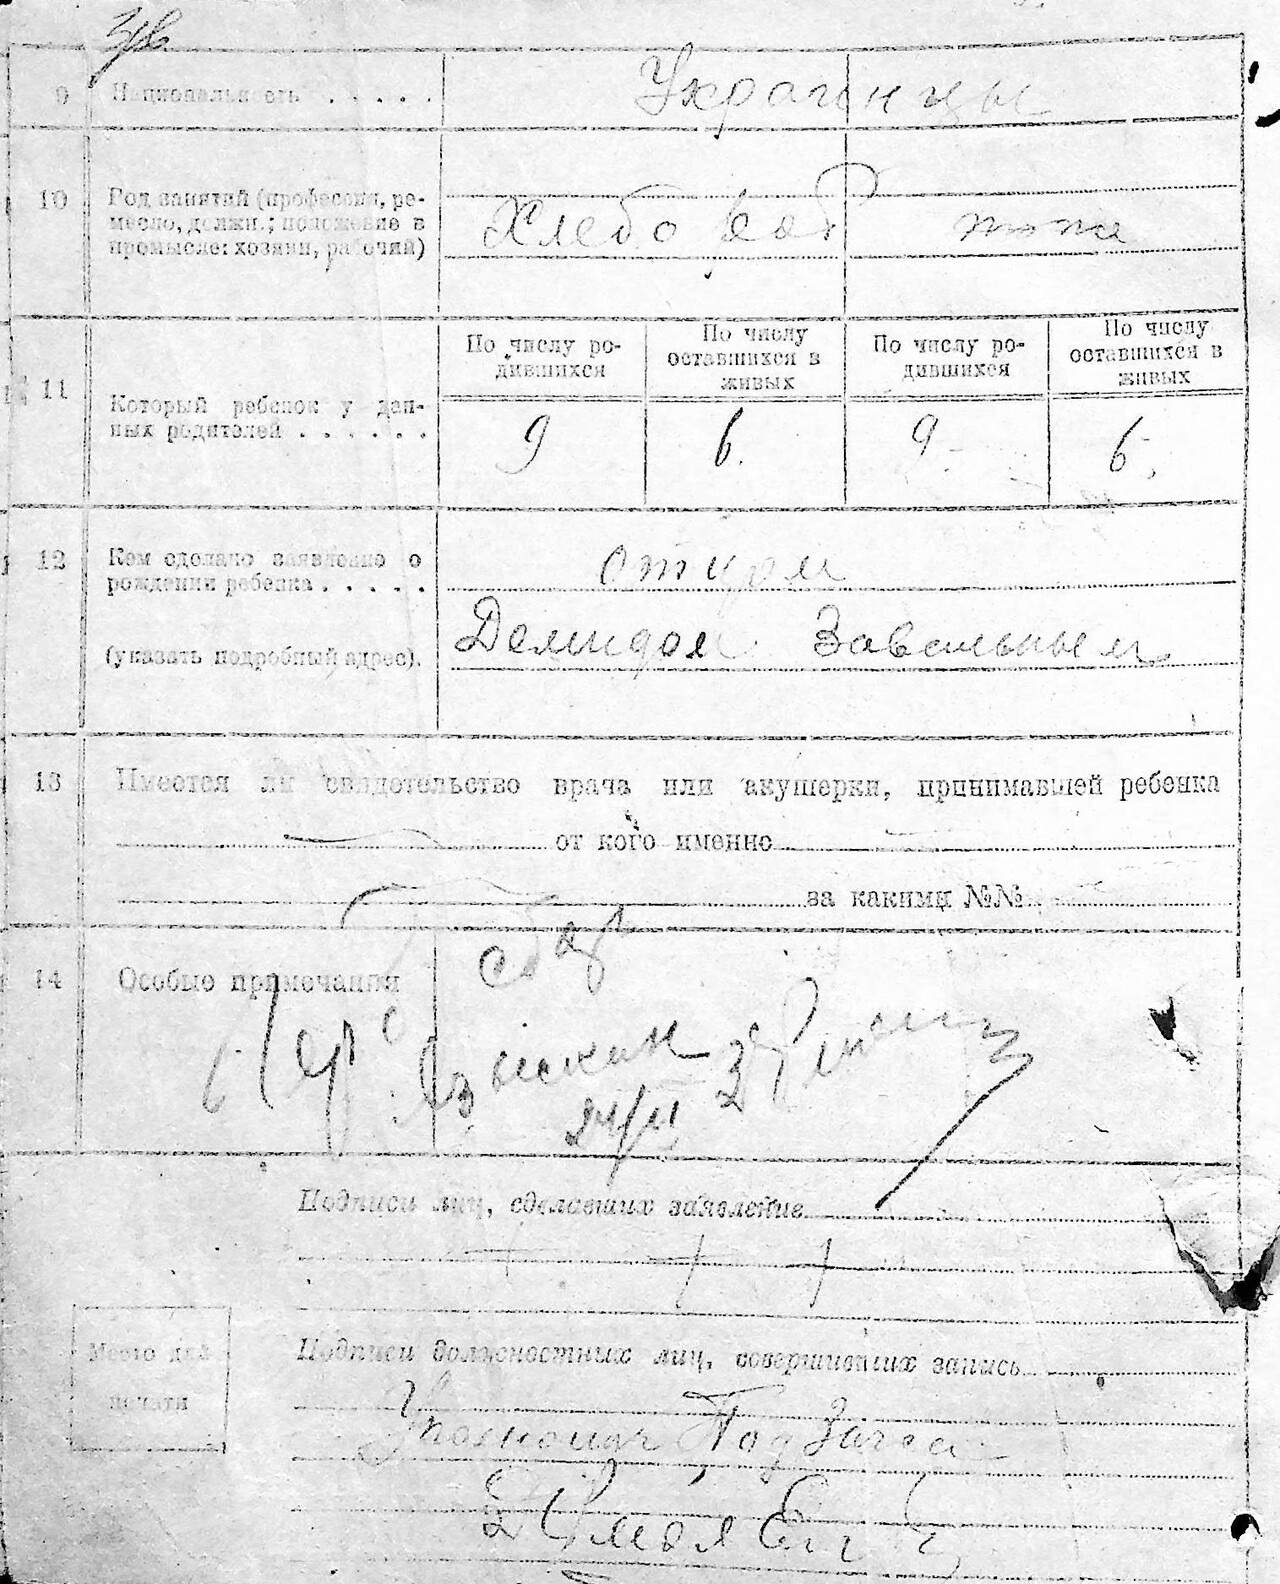 9 Национальность . . . . . Украинцы
10 Род занятий (профессия, ре-
месло, должн.; положение в
промысле: хозяин, рабочий)
Хлебороб тоже
11 Который ребенок у дан-
ных родителей . . . . . .
По числу ро-
дившихся
По числу
оставшихся в
живых
По числу ро-
дившихся
По числу
оставшихся в
живых
9 6. 9. 6.
12 Кем сделано заявление о
рождении ребенка . . . . .
отцом
(указать подробный адрес).
Демидом Завальным
13 Имеется ли свидетельство врача или акушерки, принимавшей ребенка
от кого именно
за какими №№
14 Особые примечания
Подписи лиц, сделавших заявление
+ + +
Место для
печати
Подписи должностных лиц, совершивших запись
Уполномоч Под Загса